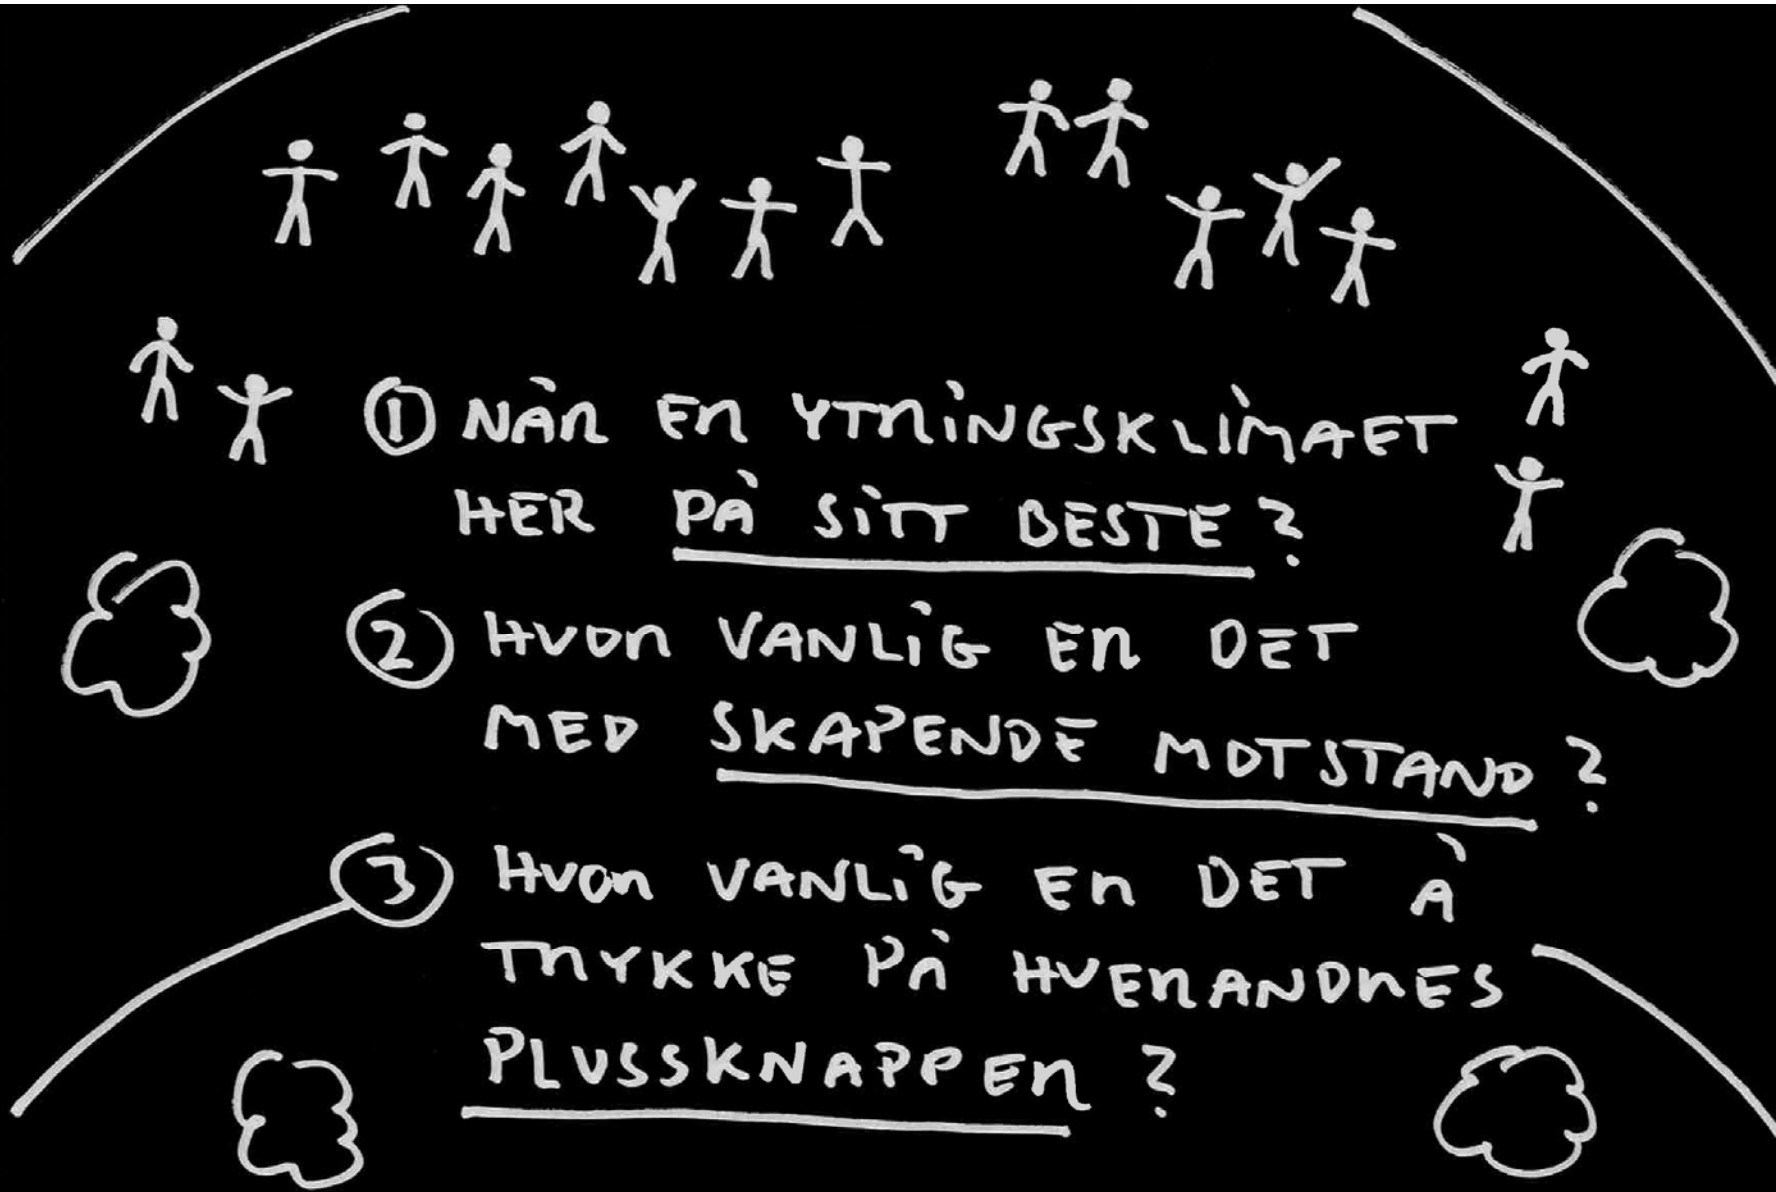 ① NÅR ER YTRINGSKLIMAET
HER PÅ SITT BESTE?
② HVOR VANLIG ER DET
MED SKAPENDE MOTSTAND?
③ HVOR VANLIG ER DET Å
TRYKKE PÅ HVERANDRES
PLUSSKNAPPER?